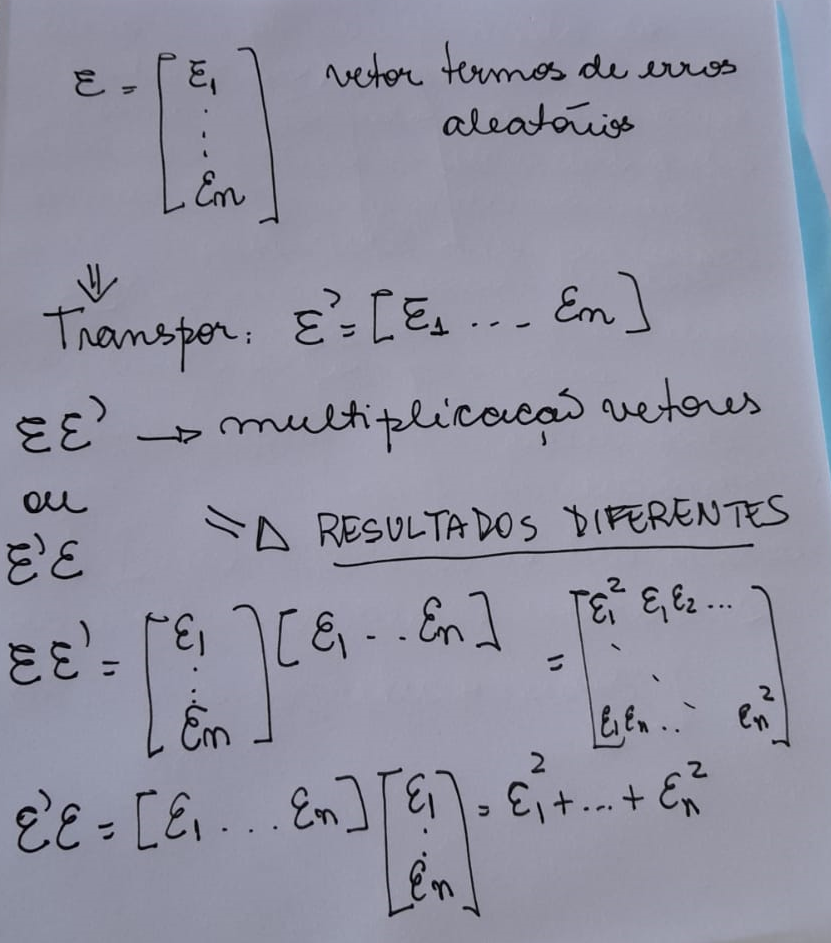 ε = [ε₁ ⋮ εn] vetor termos de erros
aleatórios
⇓
Transpor: ε' = [ε₁ ... εn]
εε' → multiplicação vetores
ou
⇒ RESULTADOS DIFERENTES
ε'ε
εε' = [ε₁ ⋮ εn] [ε₁ .. εn] = [ε₁² ε₁ε₂ ... ⋱ ε₁εn ... εn²]
ε'ε = [ε₁ ... εn] [ε₁ ⋮ εn] = ε₁² + ... + εn²